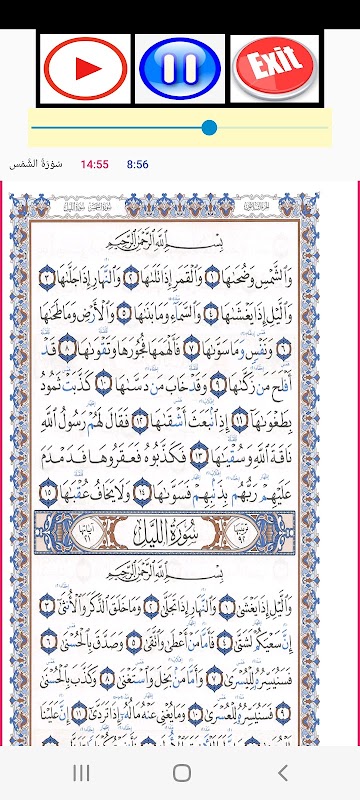 Exit
سُوْرَةُ الشَّمْس 14:55 8:56
بِسْمِ اللَّهِ الرَّحْمَٰنِ الرَّحِيمِ
وَالشَّمْسِ وَضُحَىٰهَا ١ وَالْقَمَرِ إِذَا تَلَىٰهَا ٢ وَالنَّهَارِ إِذَا جَلَّىٰهَا ٣
وَالَّيْلِ إِذَا يَغْشَىٰهَا ٤ وَالسَّمَاءِ وَمَا بَنَىٰهَا ٥ وَالْأَرْضِ وَمَا طَحَىٰهَا
٦ وَنَفْسٍ وَمَا سَوَّىٰهَا ٧ فَأَلْهَمَهَا فُجُورَهَا وَتَقْوَىٰهَا ٨ قَدْ
أَفْلَحَ مَن زَكَّىٰهَا ٩ وَقَدْ خَابَ مَن دَسَّىٰهَا ١٠ كَذَّبَتْ ثَمُودُ
بِطَغْوَىٰهَا ١١ إِذِ انۢبَعَثَ أَشْقَىٰهَا ١٢ فَقَالَ لَهُمْ رَسُولُ اللَّهِ
نَاقَةَ اللَّهِ وَسُقْيَٰهَا ١٣ فَكَذَّبُوهُ فَعَقَرُوهَا فَدَمْدَمَ
عَلَيْهِمْ رَبُّهُم بِذَنۢبِهِمْ فَسَوَّىٰهَا ١٤ وَلَا يَخَافُ عُقْبَٰهَا ١٥
سُورَةُ اللَّيْلِ
بِسْمِ اللَّهِ الرَّحْمَٰنِ الرَّحِيمِ
وَالَّيْلِ إِذَا يَغْشَىٰ ١ وَالنَّهَارِ إِذَا تَجَلَّىٰ ٢ وَمَا خَلَقَ الذَّكَرَ وَالْأُنثَىٰ ٣
إِنَّ سَعْيَكُمْ لَشَتَّىٰ ٤ فَأَمَّا مَنْ أَعْطَىٰ وَاتَّقَىٰ ٥ وَصَدَّقَ بِالْحُسْنَىٰ ٦
فَسَنُيَسِّرُهُ لِلْيُسْرَىٰ ٧ وَأَمَّا مَنۢ بَخِلَ وَاسْتَغْنَىٰ ٨ وَكَذَّبَ بِالْحُسْنَىٰ
٩ فَسَنُيَسِّرُهُ لِلْعُسْرَىٰ ١٠ وَمَا يُغْنِي عَنْهُ مَالُهُ إِذَا تَرَدَّىٰ ١١ إِنَّ عَلَيْنَا